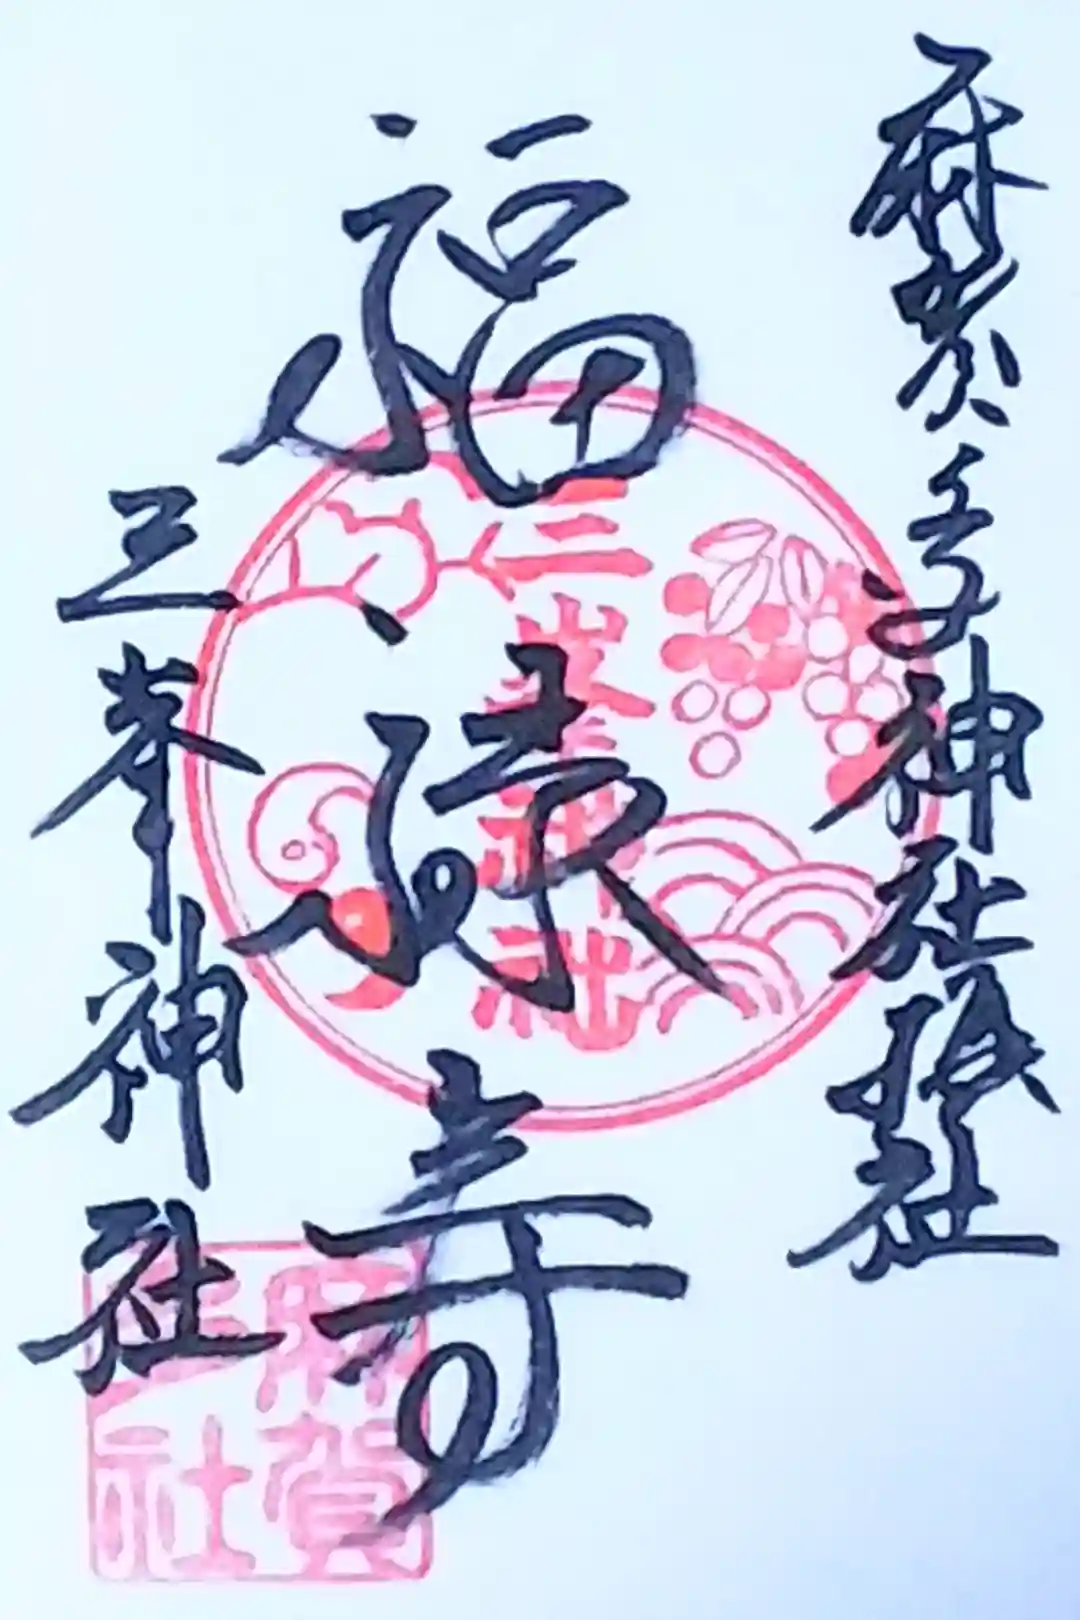 麻賀多神社摂社
福禄寿
三峯神社
三峯神社